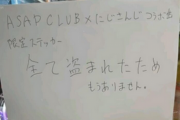 ASAP CLUB×にじさんじ
限定ステッカー
全て盗まれたため
もうありません。